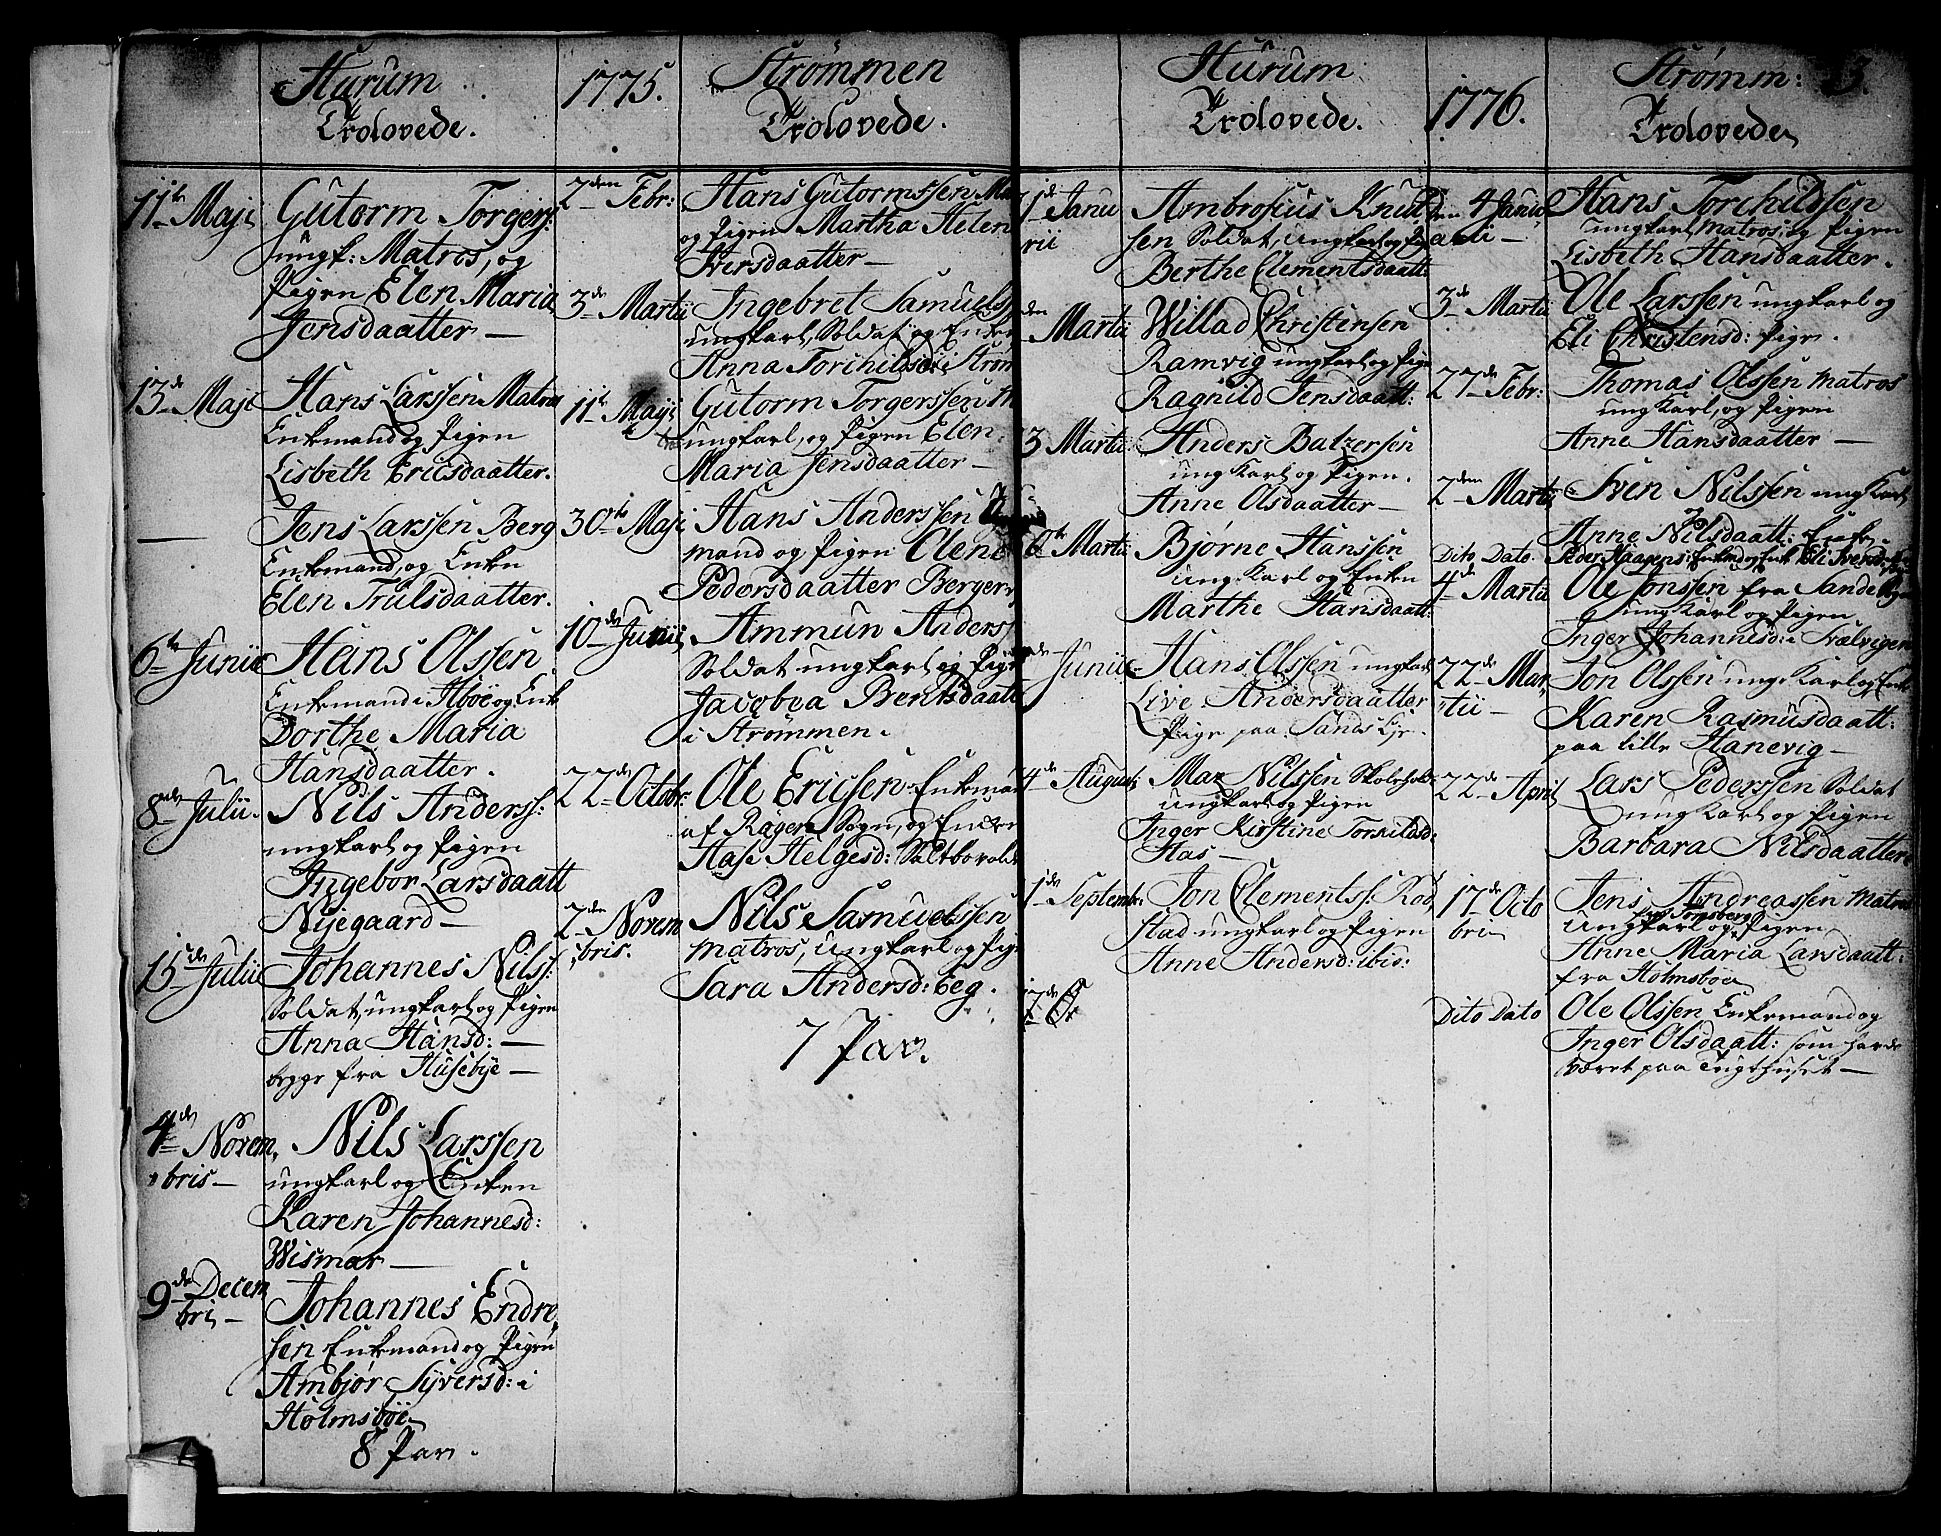 Hurum
Trolovede.
11te Maji
Gutorm Torgers:
ungk: Matros, og
Pigen Elen Maria
Jensdaatter —
13de Maji
Hans Larssen Matros
Enkemand og Pigen
Lisbeth Ericsdaatter.
—
Jens Larssen Berg
Enkemand, og Enken
Elen Trulsdaatter.
6te Junii
Hans Olssen
Enkemand i og Enk
Dorthe Maria
Hansdaatter.
8de Julii.
Nils Anderss:
ungkarl og Pigen
Ingebor Larsdaatt
Nyegaard —
15de Julii
Johannes Nilss:
Soldat, ungkarl og Pigen
Anna Hansd: —
begge fra Husebye —
4de Novem
bris —
Nils Larssen
ungkarl og Enken
Karen Johannesd:
Wismar —
9de Decem
bri —
Johannes Endre
sen Enkemand og Pigen
Ambjør Syversd: i
Holmsboe
8 Par.
1775.
Strømmen
Trolovede.
2den Febr:
Hans Gutormssen
og Pigen Martha Helen
Iversdaatter —
3de Martii
Ingebret Samuels
ungkarl, Soldat og Enken
Anna Torchilsd: i Strøm
11te Maji
Gutorm Torgerssen
ungkarl, og Pigen Elen
Maria Jensdaatter —
30te Maji
Hans Anderssen
mand og Pigen Olene
Pedersdaatter Berger
10de Junii
Ammun Anders
Soldat ungkarl og Pige
Jacobea Bentsdaatt
i Strømmen.
22de Octobr:
Ole Ericsen Enkeman
af Røgen Sogn, og Enken
Helgesd:
2den Novem
bris.
Nils Samuelssen
Matros, ungkarl og Pige
Sara Andersd:
7 Par.
Hurum
Trolovede.
1de Janu
rii
Ambrosius Knud
sen Soldat, ungkarl og Pig
Berthe Clementsdaatt
den
Martii
Willad Christensen
Ramvig ungkarl og Pige
Ragnild Jensdaatt:
3 Martii
Anders Baltzersen
ungkarl og Pigen
Anne Olsdaatter —
6te Martii
Bjørne Hanssen
ung-Karl og Enken
Marthe Hansdaatt
Junii
Hans Olssen ungkarl
Live Andersdaatter
Pige paa Sands
4de Augusti
Nilssen Skoleholder
ungkarl og Pigen
Inger Kirstine Torkildsd:
HaS —
1de Septembr:
Jon Clementss: Rød
stad ungkarl og Pigen
Anne Andersd: ibid:
17de
1776.
Strømm: 13.
Trolovede
den 4 Janu
arii —
Hans Torchildssen
ungkarl matros og Pigen
Lisbeth Hansdaatter.
3de Martii
Ole Larssen ungkarl og
Eli Christensd: Pige.
27de Febr:
Thomas Olssen matros
ungkarl, og Pigen
Anne Hansdaatter —
2den Martii
Sven Nilssen ungkarl
Anne Nilsdaatt: Enke
Dito Dato
Peder Enkem og Enk Eli
4de Martii
Ole Jonssen fra Sande
ungkarl og Pigen
Inger Johannesd: i Svelvigen
22de Mar
tii —
Jon Olssen ung-Karl og Enk
Karen Rasmusdaatt:
paa lille Hanevig —
22de April
Lars Pederssen Soldat
ungkarl og Pigen
Barbara Nilsdaatter
17de Octo
bri
Jens Andreassen matros
fra Tonsberg
ungkarl og Pigen
Anne Maria Larsdaatt:
fra Holmsboe
Dito Dato
Ole Olssen Enkemand og
Inger Olsdaatt: som havde
været paa Tugthuset —